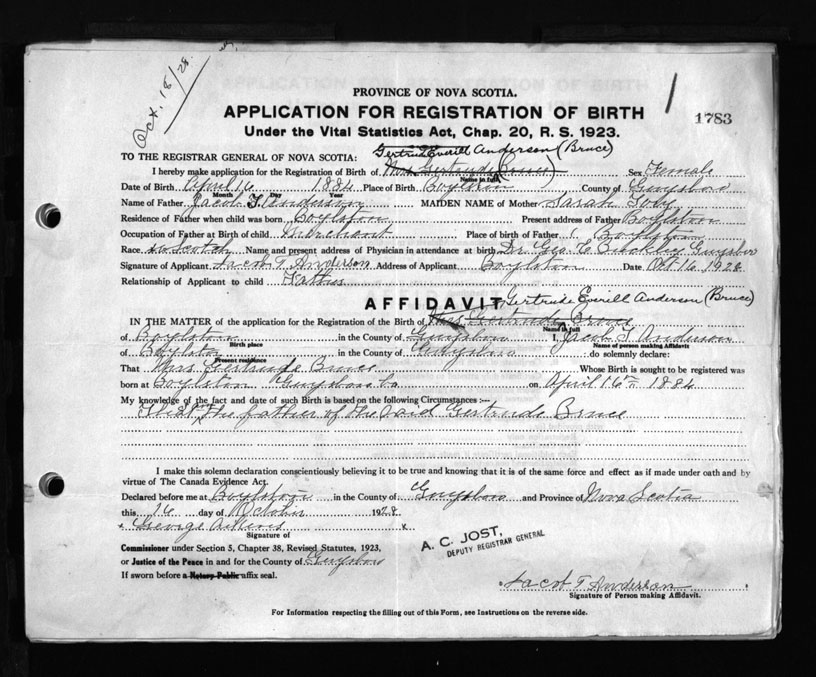 Oct. 18/28
PROVINCE OF NOVA SCOTIA.
APPLICATION FOR REGISTRATION OF BIRTH
1783
Under the Vital Statistics Act, Chap. 20, R. S. 1923.
Gertrude Everill Anderson (Bruce)
TO THE REGISTRAR GENERAL OF NOVA SCOTIA:
I hereby make application for the Registration of Birth of Mrs Gertrude (Bruce) Sex Female
Name in full
Date of Birth April 16 1884 Place of Birth Boylston County of Guysboro
Month Day Year
Name of Father Jacob T Anderson MAIDEN NAME of Mother Sarah
Residence of Father when child was born Boylston Present address of Father Boylston
Occupation of Father at Birth of child Merchant Place of birth of Father Boylston
Race Scotch Name and present address of Physician in attendance at birth Dr Geo. E Buckley Guysboro
Signature of Applicant Jacob T Anderson Address of Applicant Boylston Date Oct 16 1928
Relationship of Applicant to child Father
AFFIDAVIT Gertrude Everill Anderson (Bruce)
IN THE MATTER of the application for the Registration of the Birth of Mrs Gertrude Bruce
Name in full
of Boylston in the County of Guysboro I, Jacob T Anderson
Birth place Name of person making Affidavit
of Boylston in the County of Guysboro do solemnly declare:
Present residence
That Mrs Gertrude Bruce Whose Birth is sought to be registered was
born at Boylston Guysboro Co on April 16th 1884
My knowledge of the fact and date of such Birth is based on the following Circumstances :—
the father of the said Gertrude Bruce
I make this solemn declaration conscientiously believing it to be true and knowing that it is of the same force and effect as if made under oath and by
virtue of The Canada Evidence Act.
Declared before me at Boylston in the County of Guysboro and Province of Nova Scotia
this 16 day of October 1928
George Aikins
Signature of
Commissioner under Section 5, Chapter 38, Revised Statutes, 1923,
or Justice of the Peace in and for the County of Guysboro
If sworn before a Notary Public affix seal.
A. C. JOST,
DEPUTY REGISTRAR GENERAL
Jacob T Anderson
Signature of Person making Affidavit.
For Information respecting the filling out of this Form, see Instructions on the reverse side.